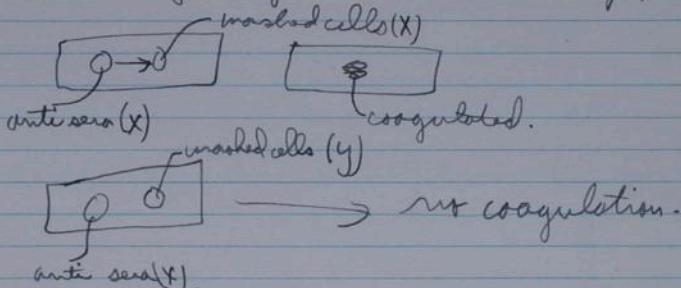 washed cells (X)
anti sera (X)
coagulated.
washed cells (y)
no coagulation.
anti sera (X)